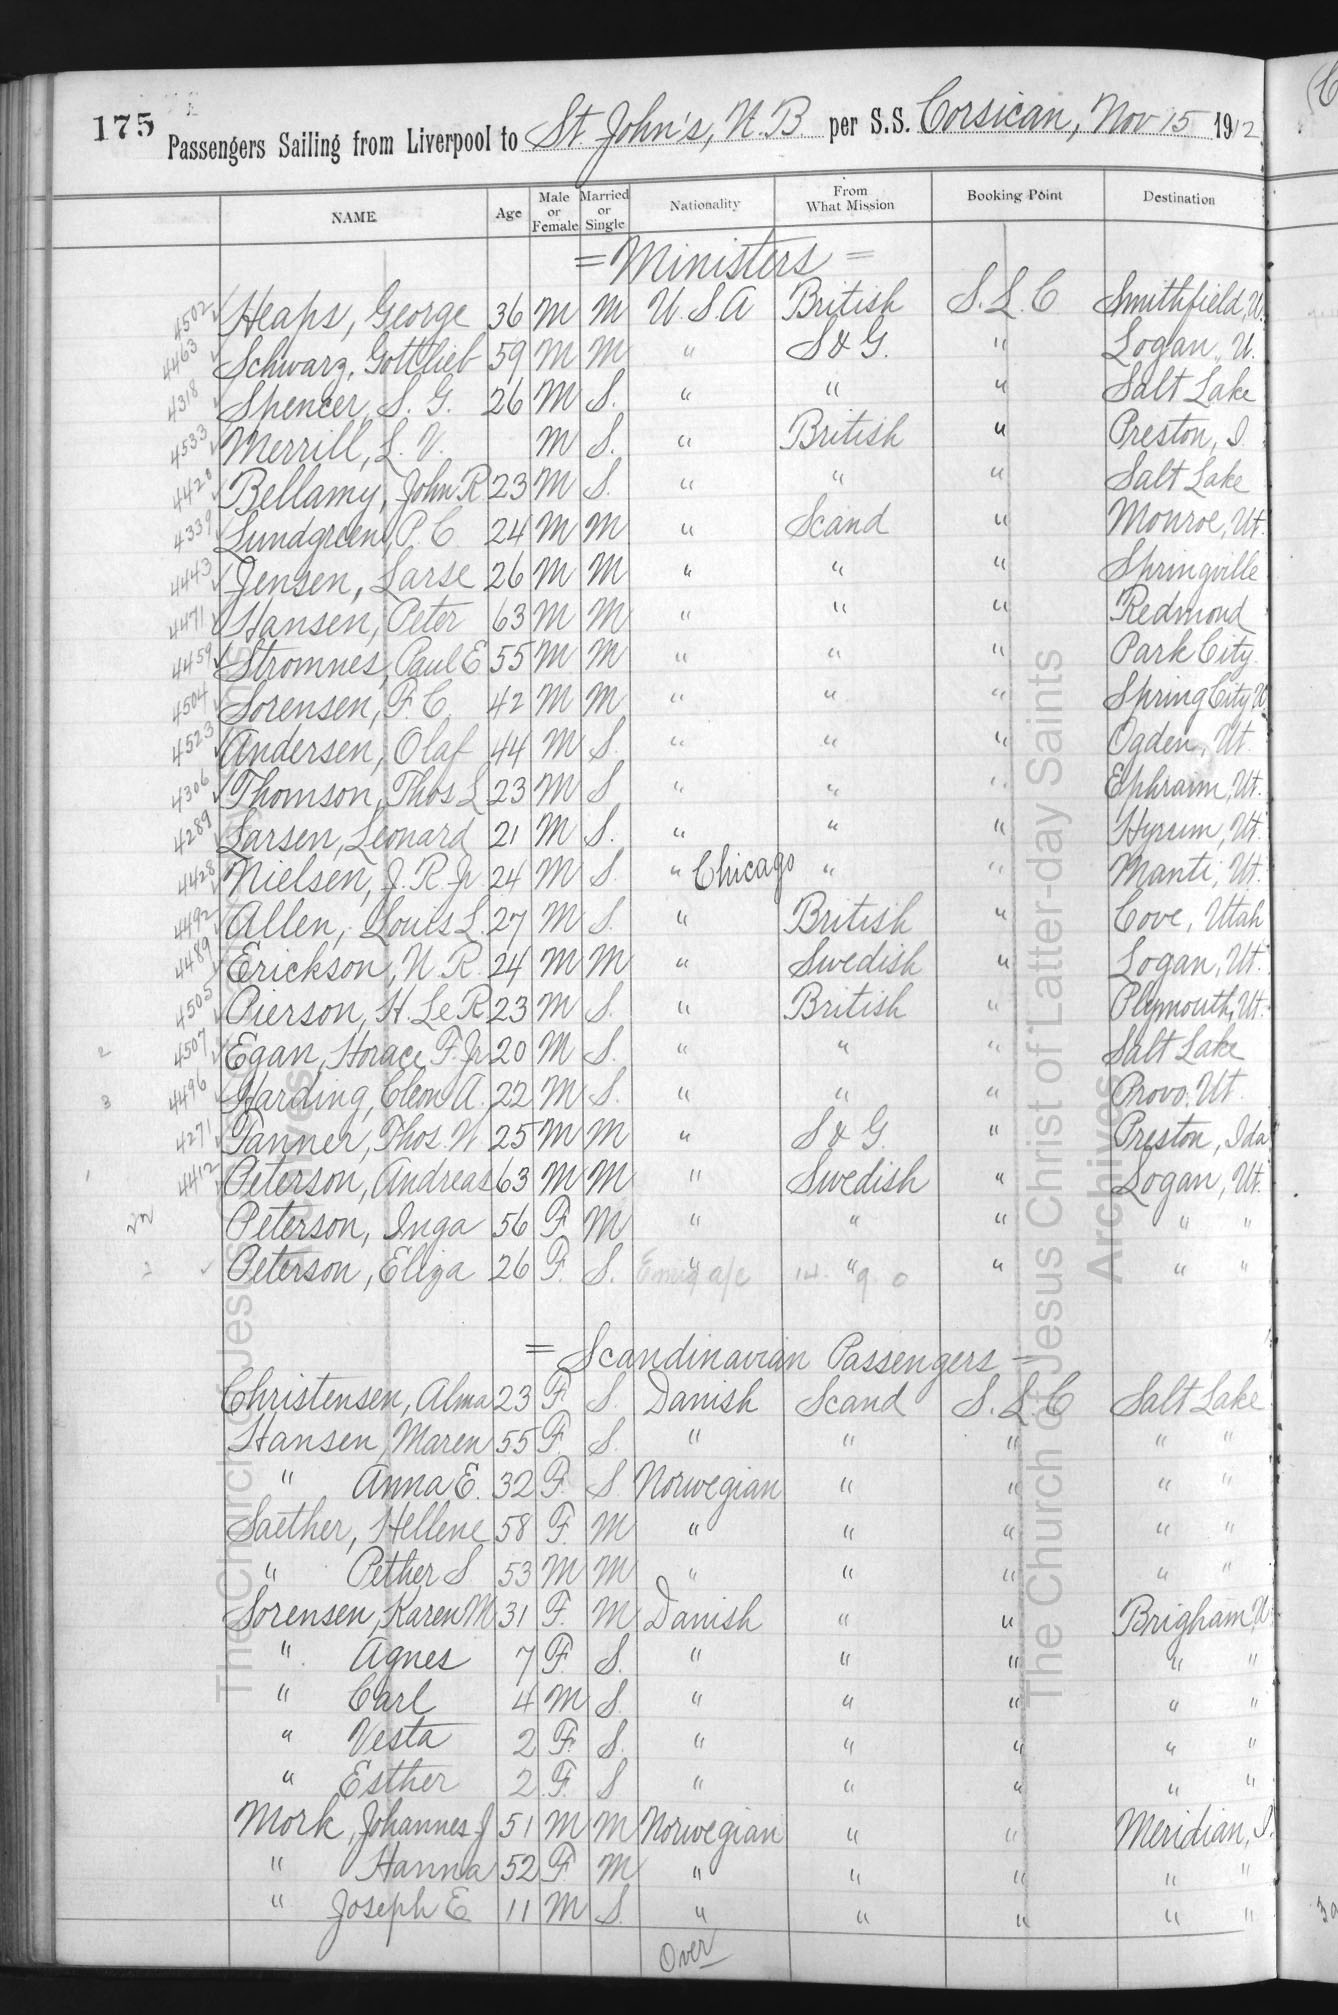 175
Passengers Sailing from Liverpool to St. John's, N.B. per S.S. Corsican, Nov 15 1912
NAME Age Male or Female Married or Single Nationality From What Mission Booking Point Destination
= Ministers =
4502 Heaps, George 36 M M U.S.A British S.L.C Smithfield, U.
4463 Schwarz, Gottlieb 59 M M " S & G. " Logan, U.
4318 Spencer, S. G. 26 M S. " " " Salt Lake
4533 Merrill, L. V. M S. " British " Preston, I.
4420 Bellamy, John R 23 M S. " " " Salt Lake
4339 Lundgreen, P. C. 24 M M " Scand " Monroe, Ut.
4443 Jensen, Larse 26 M M " " " Springville
4471 Hansen, Peter 63 M M " " " Redmond
4459 Stromnes, Paul E 55 M M " " " Park City
4504 Sorensen, F. C. 42 M M " " " Spring City U
4523 Andersen, Olaf 44 M S. " " " Ogden, Ut.
4306 Thomson, Thos L 23 M S " " " Ephraim, Ut.
4289 Larsen, Leonard 21 M S. " " " Hyrum, Ut.
4428 Nielsen, J. R. Jr 24 M S. " Chicago " " Manti, Ut.
4492 Allen, Louis L. 27 M S. " British " Cove, Utah
4489 Erickson, N. R. 24 M M " Swedish " Logan, Ut.
4505 Pierson, H. Le R 23 M S. " British " Plymouth, Ut.
2 4507 Egan, Horace F. Jr 20 M S. " " " Salt Lake
3 4496 Harding, Cleon A. 22 M S. " " " Provo, Ut.
4271 Tanner, Thos. W 25 M M " S & G. " Preston, Ida
1 4412 Peterson, Andreas 63 M M " Swedish " Logan, Ut.
Peterson, Inga 56 F. M " " " " "
2 Peterson, Eliza 26 F. S. " Emig a/c 14. " 9. 0 " " "
= Scandinavian Passengers =
Christensen, Alma 23 F. S. Danish Scand S.L.C Salt Lake
Hansen, Maren 55 F. S. " " " " "
" Anna E. 32 F. S. Norwegian " " " "
Saether, Hellene 58 F. M " " " " "
" Pether S 53 M M " " " " "
Sorensen, Karen M 31 F. M Danish " " Brigham, U
" Agnes 7 F. S. " " " " "
" Carl 4 M S. " " " " "
" Vesta 2 F. S. " " " " "
" Esther 2 F. S " " " " "
Mork, Johannes J 51 M M Norwegian " " Meridian, I.
" Hanna 52 F M " " " " "
" Joseph E 11 M S. " " " " "
Over
The Church of Jesus Christ of Latter-day Saints
Archives